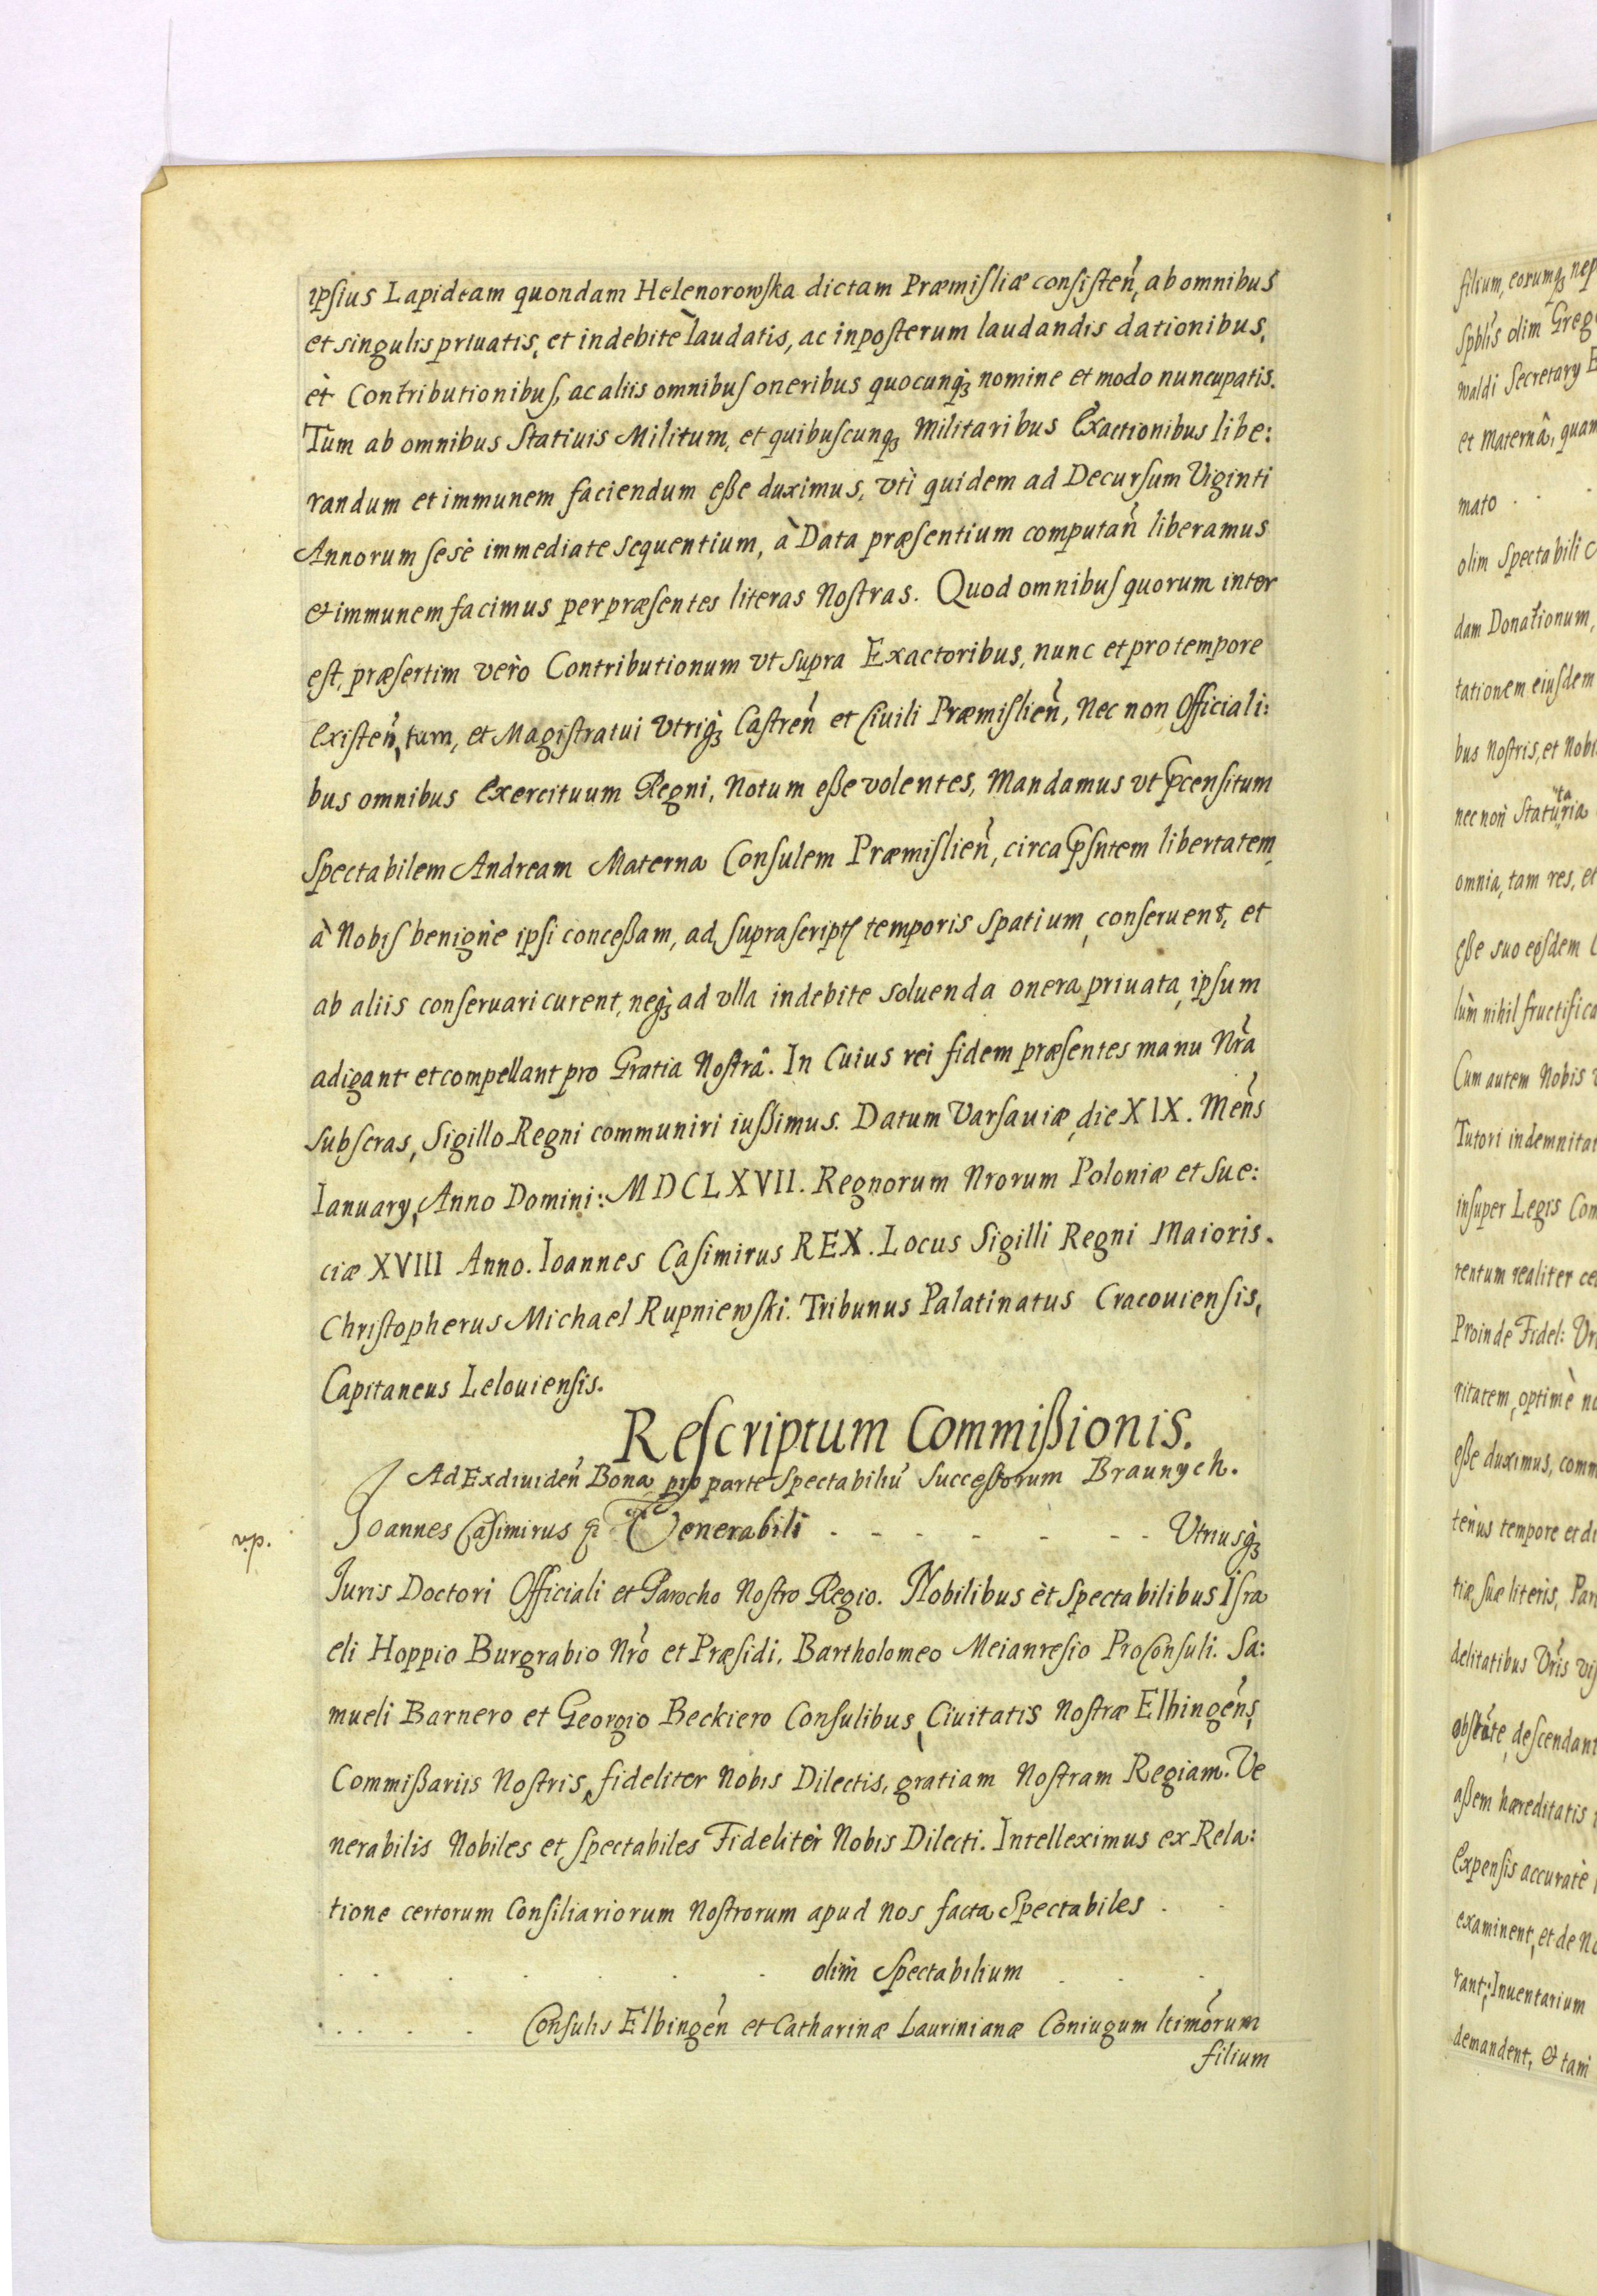 ipsius Lapideam quondam Helenorowska dictam Præmisliæ consisteñ, ab omnibus
et singulis priuatis, et indebitè laudatis, ac inposterum laudandis dationibus,
èt Contributionibus, ac aliis omnibus oneribus quocunq3 nomine et modo nuncupatis.
Tum ab omnibus Statiuis Militum, et quibuscunq3 Militaribus Exactionibus libe:
randum et immunem faciendum eße duximus, vti quidem ad Decursum Viginti
Annorum sesè immediate sequentium, à Data præsentium computañ liberamus
et immunem facimus per præsentes literas Nostras. Quod omnibus quorum inter
est, præsertim verò Contributionum vt supra Exactoribus, nunc et pro tempore
existeñ, tum, et Magistratui Vtriq3 Castreñ et Ciuili Præmislieñ, Nec non Officiali:
bus omnibus Exercituum Regni, Notum eße volentes, Mandamus vt pcensitum
Spectabilem Andream Materna Consulem Præmislieñ, circa psntem libertatem,
à Nobis benigne ipsi conceßam, ad supra scripti temporis spatium, conseruent, et
ab aliis conseruari curent, neq3 ad vlla indebite soluenda onera priuata, ipsum
adigant et compellant pro Gratia Nostrâ. In Cuius rei fidem præsentes manu Nrã
subscras, Sigillo Regni communiri iußimus. Datum Varsauiæ, die XIX. Meñs
Ianuary, Anno Domini: MDCLXVII. Regnorum Nrorum Poloniæ et Sue:
ciæ XVIII Anno. Ioannes Casimirus REX. Locus Sigilli Regni Maioris.
Christopherus Michael Rupniewski. Tribunus Palatinatus Cracouiensis,
Capitaneus Lelouiensis.
Rescriptum Commißionis.
Ad Exdiuideñ Bona pro parte Spectabiliũ Succeßorum Braunych.
Joannes Casimirus Venerabili . - - - - - - - Vtriusq3
Juris Doctori Officiali et Parocho Nostro Regio. Nobilibus èt Spectabilibus Isra
eli Hoppio Burgrabio Nrõ et Præsidi, Bartholomeo Meianresio ProConsuli. Sa:
mueli Barnero et Georgio Beckiero Consulibus, Ciuitatis Nostræ Elbingeñs,
Commißariis Nostris, fideliter Nobis Dilectis, gratiam Nostram Regiam. Ve
nerabilis Nobiles et Spectabiles Fideliter Nobis Dilecti. Intelleximus ex Rela:
tione certorum Consiliariorum Nostrorum apud Nos facta Spectabiles . .
. . . . . . . olim Spectabilium . . .
. . . . . Consulis Elbingeñ et Catharinæ Laurinianæ Coniugum ltimõrum
filium
filium, eorumq3 nep
Spblis olim Greg
waldi Secretary
et Maternâ, quam
mato . . .
olim Spectabili
dam Donationum,
tationem eiusdem
bus Nostris, et Nobi
nec non
omnia, tam res, et
eße suo eosdem
nihil fructifica
Cum autem Nobis
Tutori indemnitat
insuper Legis Com
rentum realiter ce
Proinde Fidel: Vr
ritatem, optimè no
eße duximus, comm
tènus tempore et di
tiæ suæ literis, Par
delitatibus Vris vis
descendant
aßem hæreditatis
Expensis accuratè
examinent, et de No
rant; Inuentarium
demandent, et tam